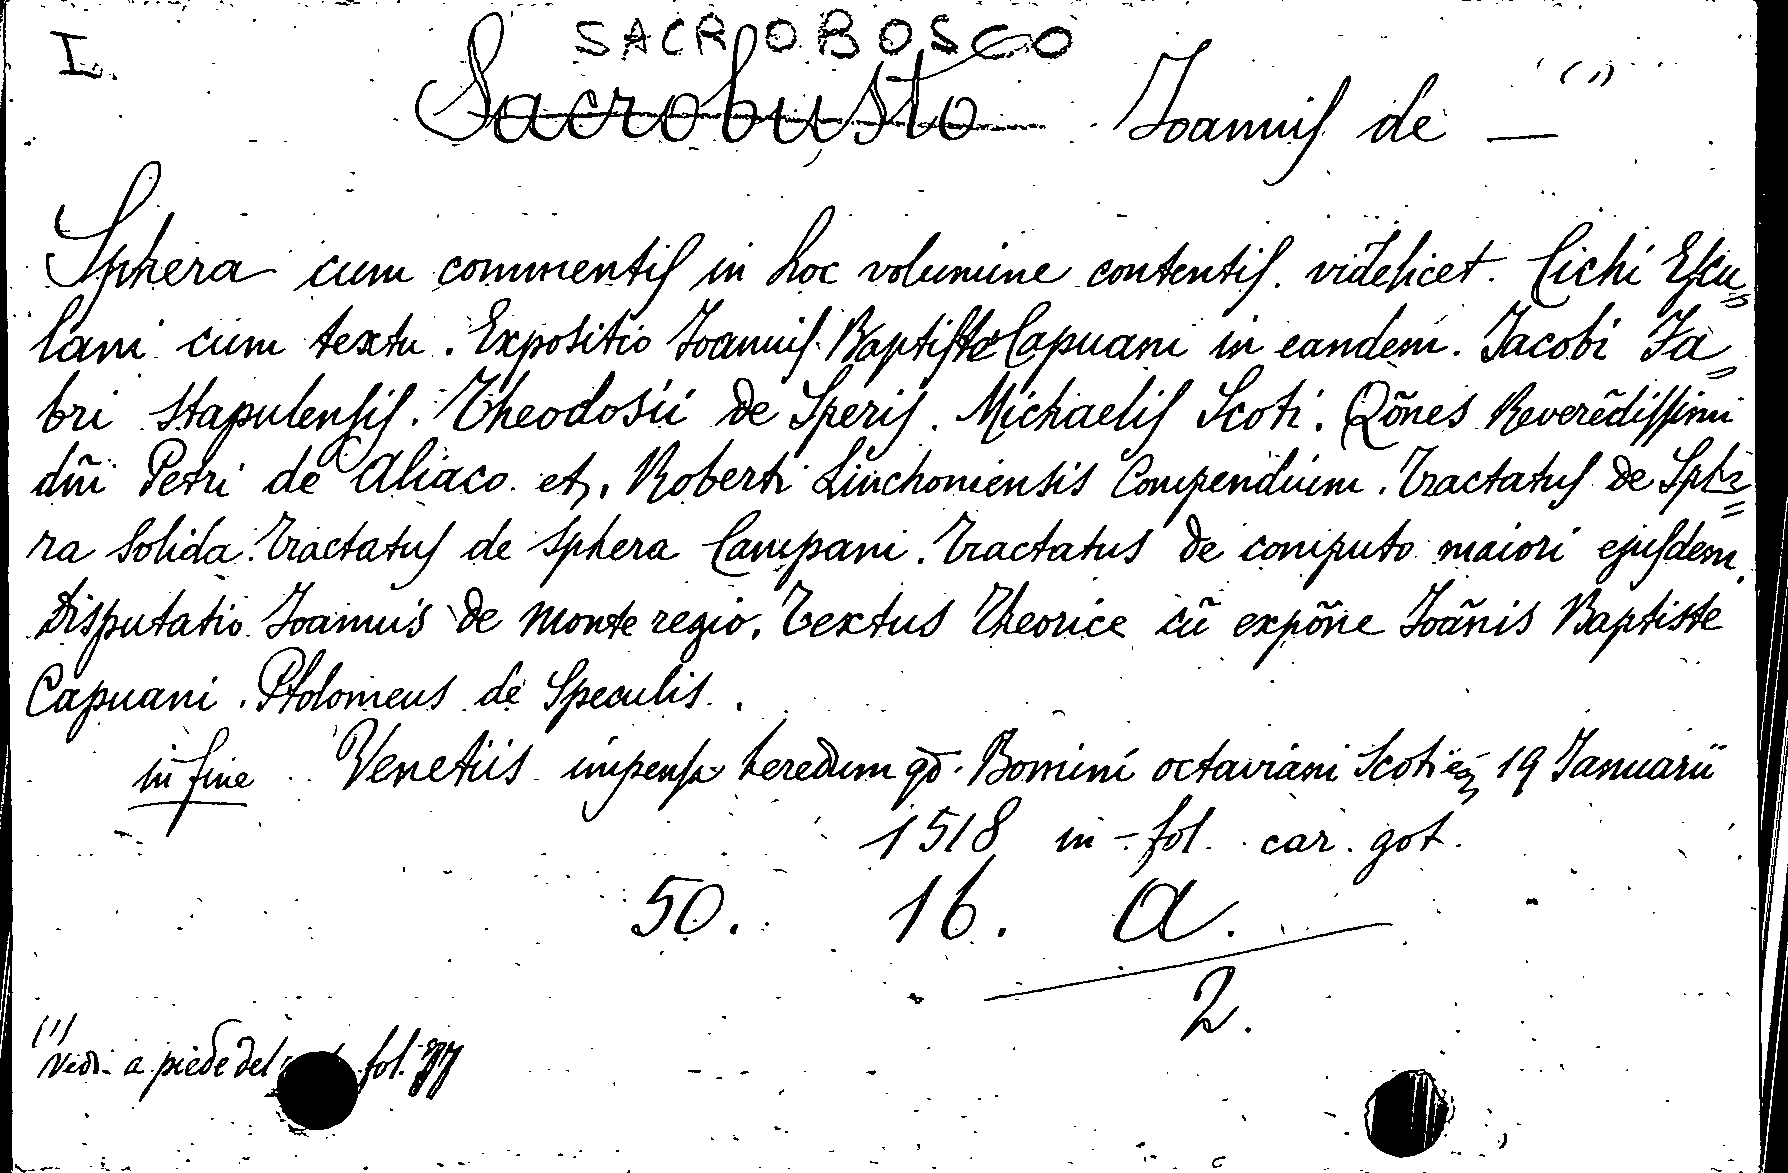 I.
SACROBOSCO
Sacrobusto Joannis de — (1)
Sphera cum commentis in hoc volumine contentis. videlicet. Cichi Escu=
lani cum textu. Expositio Joannis Baptiste Capuani in eandem. Jacobi Fa=
bri Stapulensis. Theodosii de Speris. Michaelis Scoti. Qões Reverẽdissimi
dñi Petri de Aliaco. et. Roberti Linchoniensis Compendium. Tractatus de Sphe=
ra Solida. Tractatus de Sphera Campani. Tractatus de computo maiori ejusdem.
Disputatio Joannis de Monte regio. Textus Theorice cũ expõne Joãnis Baptiste
Capuani. Ptolomeus de Speculis.
in fine Venetiis impensa heredum qd. Domini octaviani Scoti 19 Januarii
1518 in-fol. car. got.
50. 16. A.
2.
(1)
Vedi a piede del fol. 77